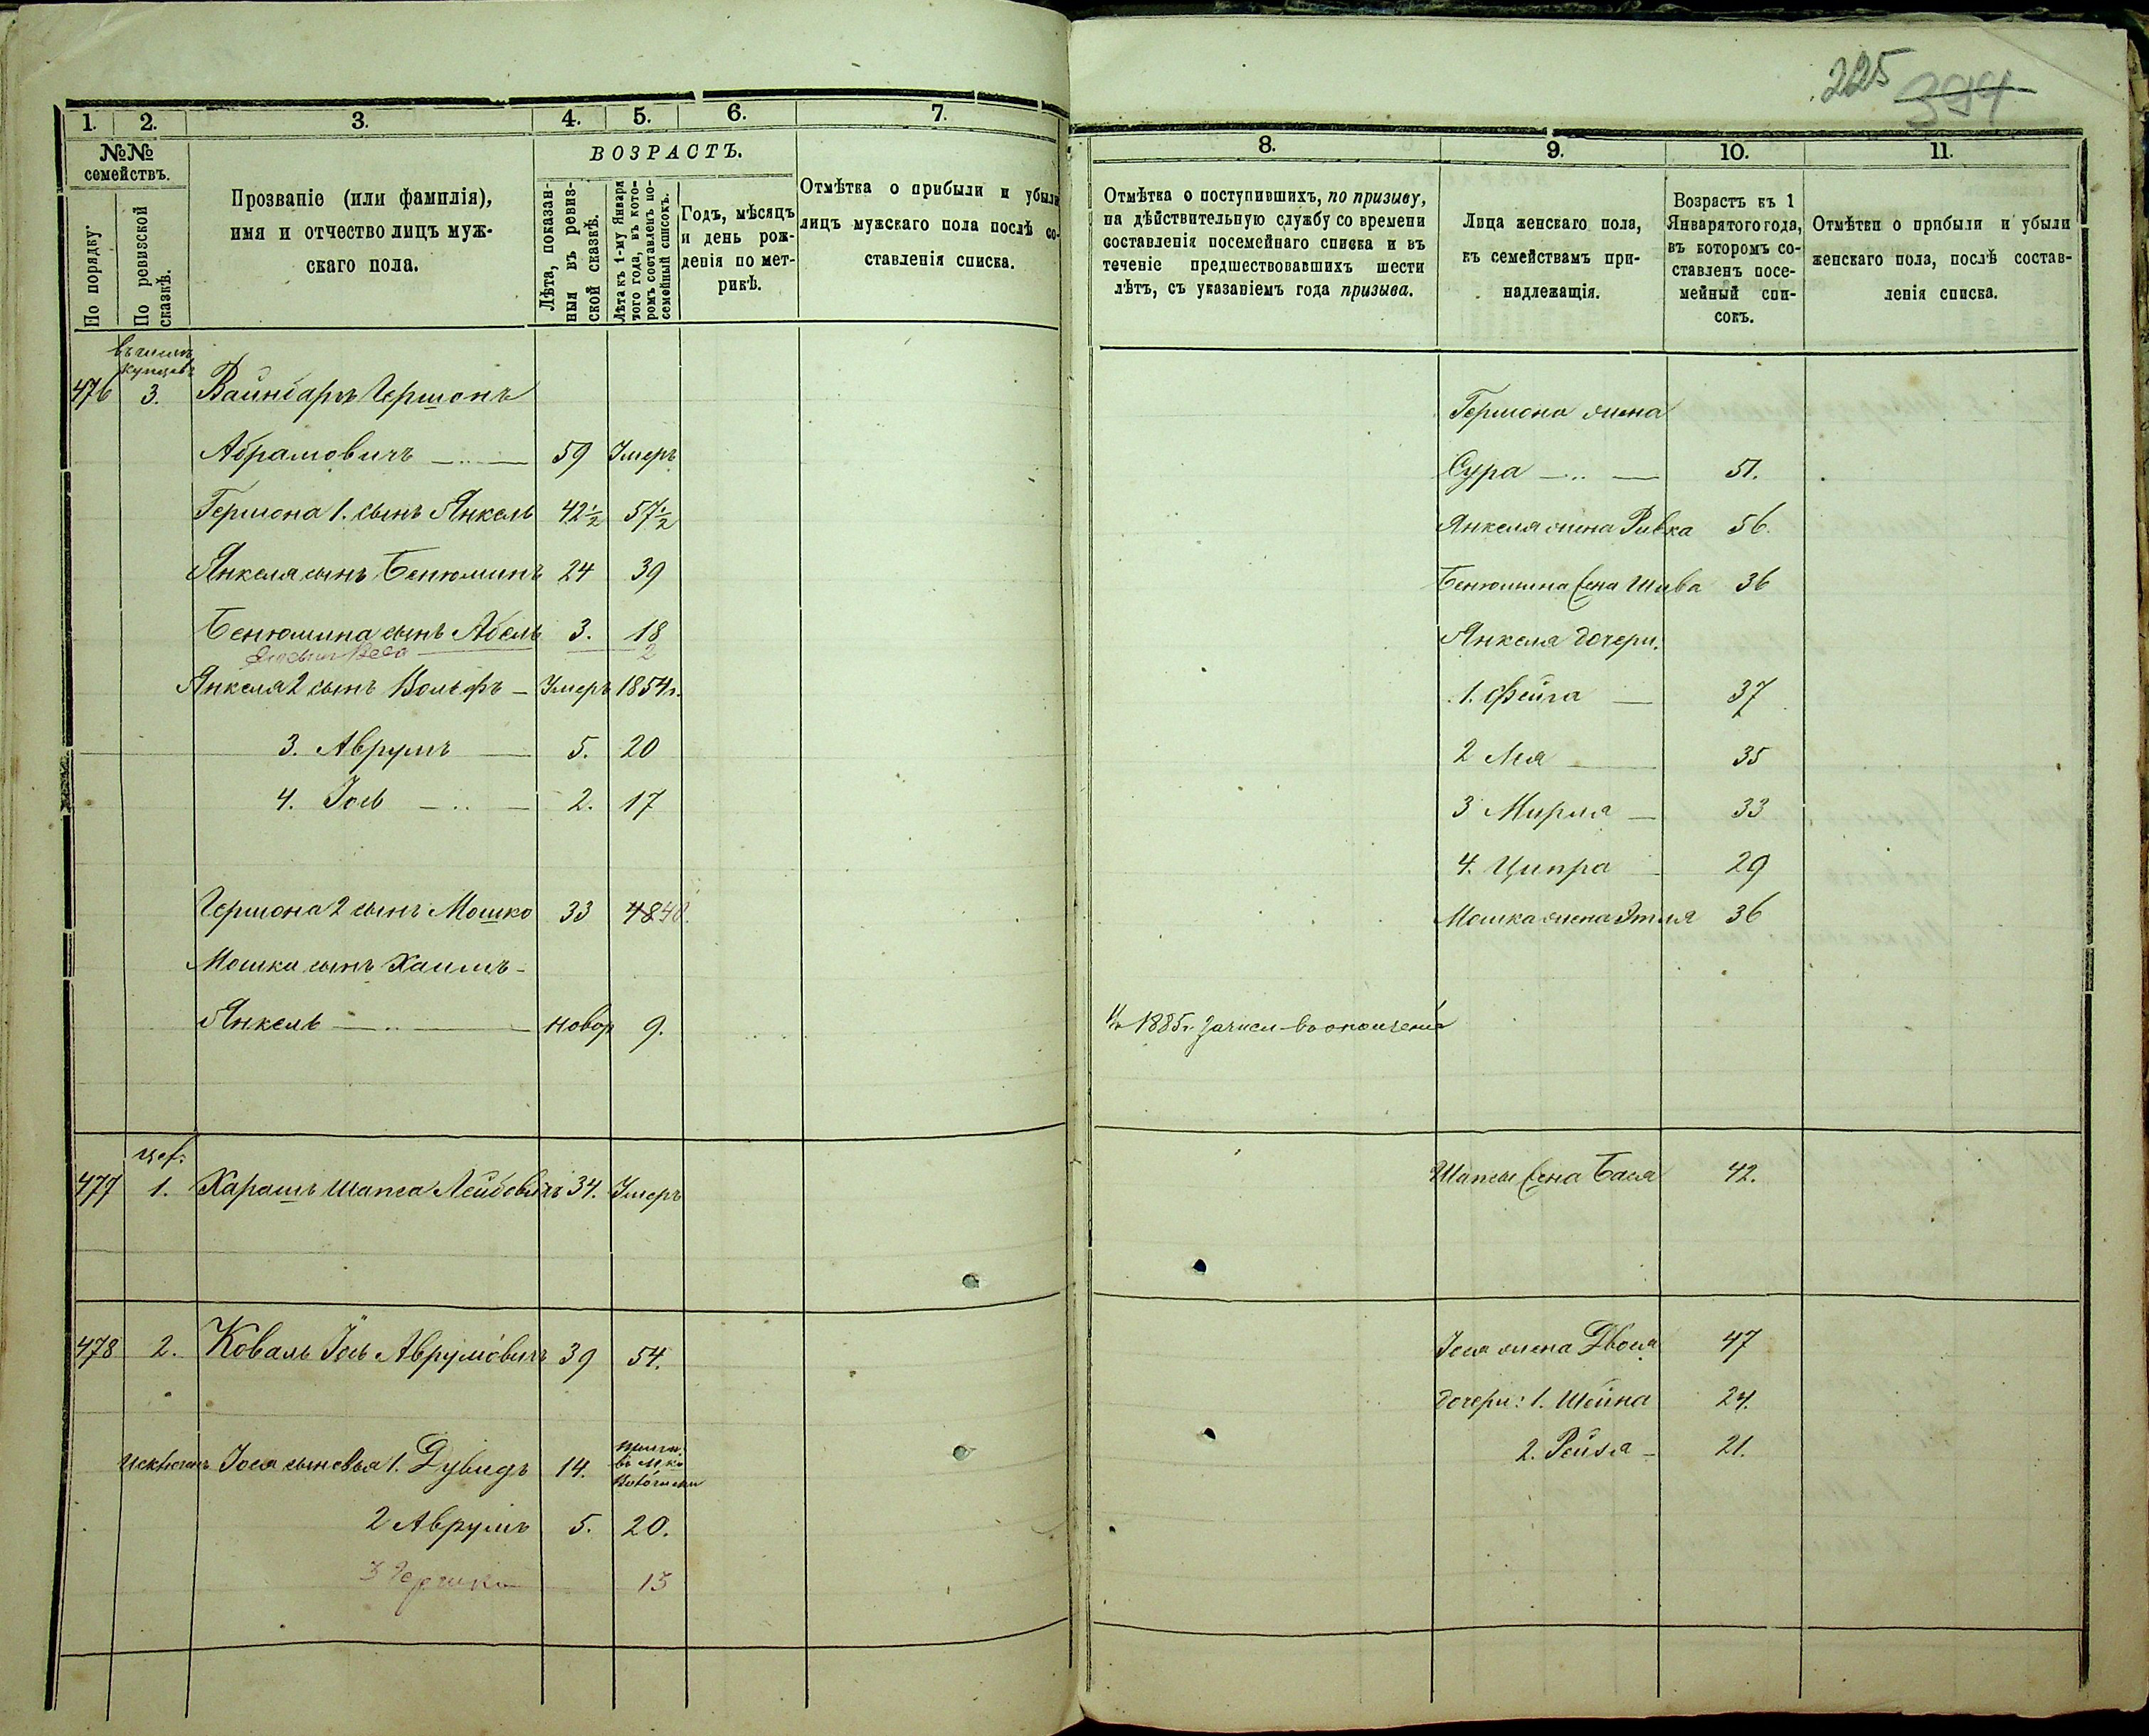 225 394
1. 2. 3. 4. 5. 6. 7.
№№ семействъ.
По порядку.
По ревизской сказкѣ.
Прозваніе (или фамилія),
имя и отчество лицъ муж-
скаго пола.
ВОЗРАСТЪ.
Лѣта, показан-
ныя въ ревиз-
ской сказкѣ.
Лѣта къ 1-му Января
того года, въ кото-
ромъ составленъ по-
семейный списокъ.
Годъ, мѣсяцъ
и день рож-
денія по мет-
рикѣ.
Отмѣтка о прибыли и убыли
лицъ мужскаго пола послѣ со-
ставленія списка.
въ числѣ
купцовъ
476 3. Вайнбаръ Гершонъ
Абрамовичъ 59 Умеръ
Гершона 1. сынъ Янкель 42½ 57½
Янкеля сынъ Бенюминъ 24 39
Бенюмина сынъ Абель 3. 18
2
Янкеля 2 сынъ Вольфъ Умеръ 1854 г.
3. Аврумъ 5. 20
4. Іось 2. 17
Гершона 2 сынъ Мошко 33 48 48.
Мошки сынъ Хаимъ-
Янкель новор 9.
477 1. Харашъ Шапса Лейбовичъ 34. Умеръ
478 2. Коваль Іось Аврумовичъ 39 54.
Іося сыновья 1. Дувидъ 14.
2 Аврумъ 5. 20.
3 Гершко 13
8. 9. 10. 11.
Отмѣтка о поступившихъ, по призыву,
на дѣйствительную службу со времени
составленія посемейнаго списка и въ
теченіе предшествовавшихъ шести
лѣтъ, съ указаніемъ года призыва.
Лица женскаго пола,
къ семействамъ при-
надлежащія.
Возрастъ къ 1
Января того года,
въ которомъ со-
ставленъ посе-
мейный спи-
сокъ.
Отмѣтки о прибыли и убыли
женскаго пола, послѣ состав-
ленія списка.
Гершона жена
Сура 51.
Янкеля жена Ривка 56.
Бенюмина жена Шива 36
Янкеля дочери.
1. Фейга 37
2 Лея 35
3 Мирля 33
4. Ципра 29
Мошка жена Этля 36
1885 г. зачисл. въ ополченіе
Шапсы жена Бася 42.
Іося жена Двося 47
дочери: 1. Шейна 24.
2. Рейзя 21.